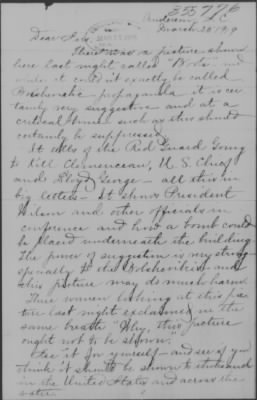 355776
Anderson, S.C.
March 28 1919
Dear Sir:
There was a picture shown
here last night called "
while it could'nt exactly be called
Bolshevistic propaganda it is cer
tainly very suggestive and at a
critical time such as this should
certainly be suppressed.
It tells of the Red Guard going
to Kill Clemenceau, U.S. Chief
and Lloyd George - all this in
big letters - It shows President
Wilson and other officials in
conference and how a bomb could
be placed underneath the building.
The power of suggestion is very strong
specially to the Bolsheviki and
this picture may do much harm.
Three women looking at this pic
ture last night exclaimed in the
same breath "Why, this picture
ought not to be shown."
See it for yourself - and see if you
think it should be shown to thousands
in the United States and across the
water.